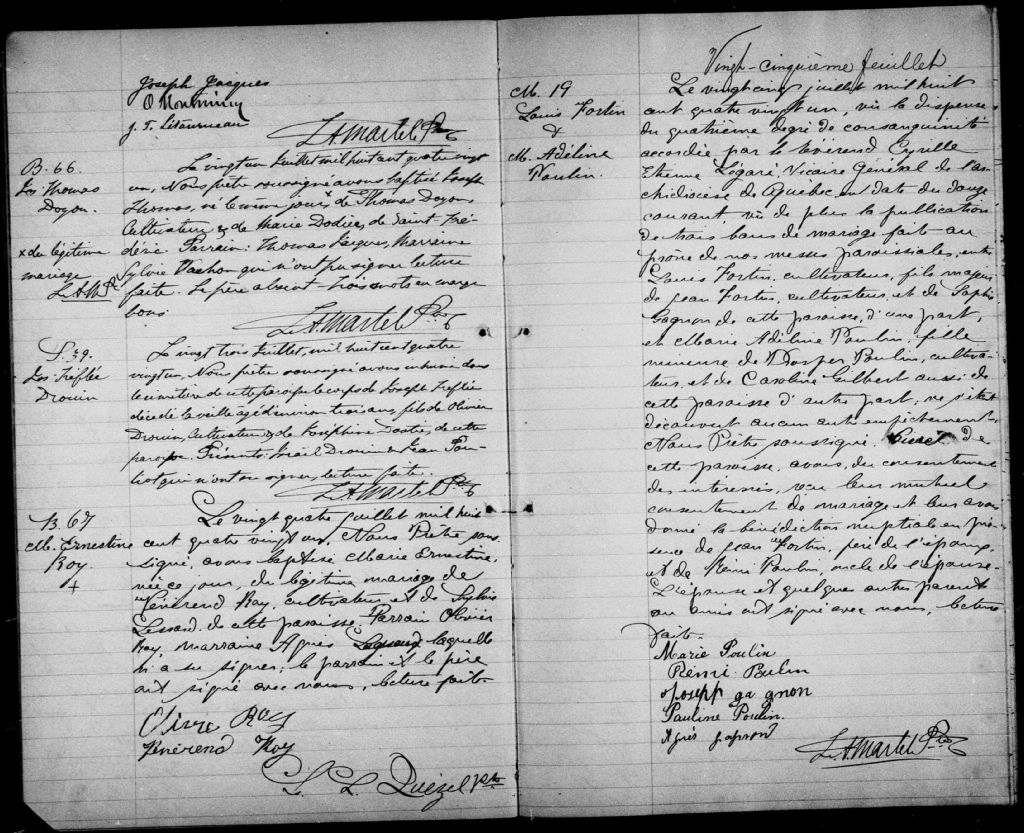 Joseph Jacques
O Monminy
J. T. Létourneau
L. A. Martel Ptre
B. 66.
Jos Thomas
Doyon.
x de légitime
mariage
L.A.M. Pt
Le vingt un Juillet mil huit cent quatre vingt
un, Nous Prêtre soussigné avons baptisé Joseph
Thomas, né le même jour x de Thomas Doyon,
Cultivateur, & de Marie Dodier, de Saint Fré-
déric. Parrain: Thomas Jacques, Marraine
Sylvie Vachon qui n'ont pu signer lecture
faite. Le père absent. Trois mots en marge
bons
L. A. Martel Ptre
S. 39.
Jos Trefflé
Drouin
Le vingt trois Juillet, mil huit cent quatre
vingt un, Nous Prêtre soussigné avons inhumé dans
le cimetière de cette paroisse le corps de Joseph Trefflé
décédé la veille âgé d'environ trois ans, fils de Olivier
Drouin, Cultivateur, & de Joséphine Dostie, de cette
paroisse. Présents: Drouin & Jean Pou-
liot qui n'ont su signer, lecture faite.
L. A. Martel Ptre
B. 67
M. Ernestine
Roy
+
Le vingt quatre juillet mil huit
cent quatre vingt un, Nous Prêtre sous-
signé, avons baptisé Marie Ernestine,
née ce jour, du légitime mariage de
Révérend Roy, cultivateur et de Sylvie
Lessard de cette paroisse. Parrain Olivier
Roy, marraine Agnès laquelle
n'a su signer; le parrain et le père
ont signé avec nous, lecture faite.
Roy
Révérend Roy
S. L. Quézel Ptre
Vingt-cinquième feuillet
M 19
Louis Fortin
&
M. Adéline
Poulin.
Le vingt cinq juillet mil huit
cent quatre vingt un, vu la dispense
du quatrième degré de consanguinité
accordée par le Révérend Cyrille
Etienne Légaré, Vicaire Général de l'ar-
chidiocèse de Québec en date du douze
courant, vu de plus la publication
de trois bans de mariage fait au
prône de nos messes paroissiales, entre
Louis Fortin, cultivateur, fils majeur
de Jean Fortin, cultivateur, et de Sophie
Gagnon de cette paroisse, d'une part,
et Marie Adéline Poulin, fille
mineure de Prosper Poulin, cultiva-
teur, et de Caroline Gilbert aussi de
cette paroisse d'autre part; ne s'étant
découvert aucun autre empêchement,
Nous Prêtre soussigné, de
cette paroisse, avons, du consentement
des intéressés, reçu leur mutuel
consentement de mariage et leur avons
donné la bénédiction nuptiale en pré-
sence de Jean Fortin, père de l'époux,
et de Rémi Poulin, oncle de l'épouse.
L'épouse et quelques autres parents
ou amis ont signé avec nous, lecture
faite.
Marie Poulin
Remi Poulin
Joseph ga gnon
Pauline Poulin.
Agnès
L. A. Martel Ptre